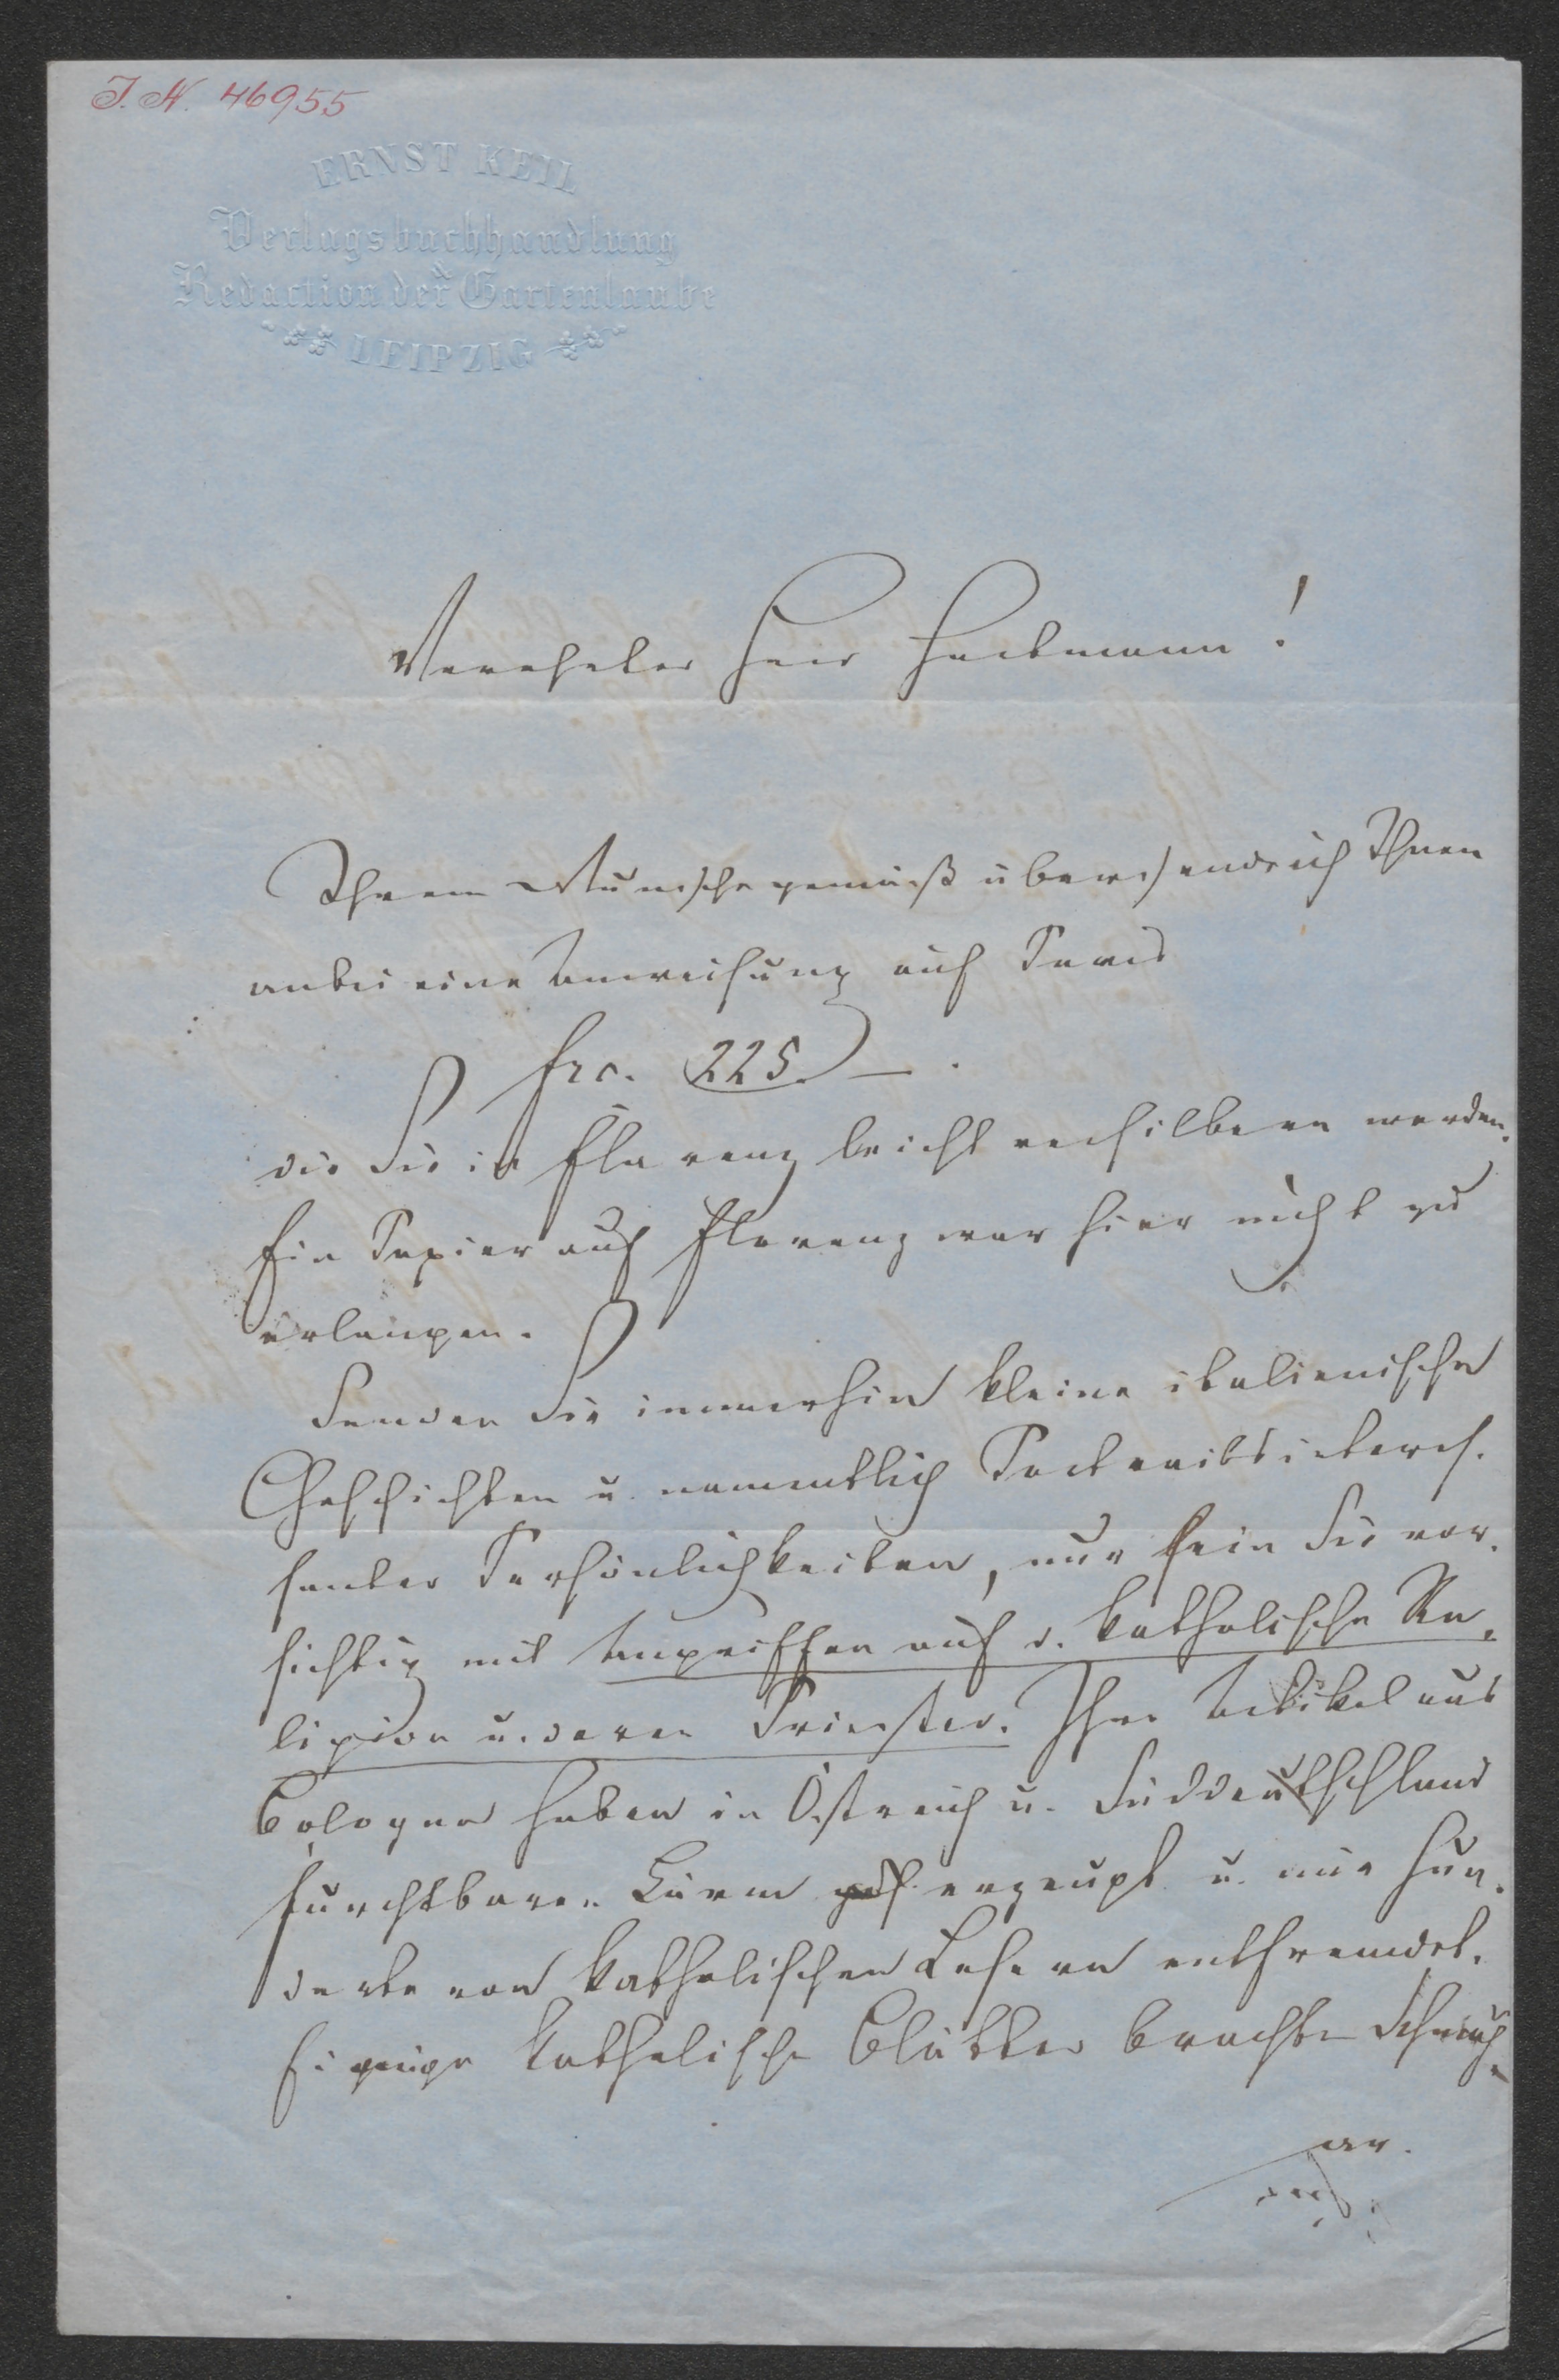 J. N. 46955
ERNST KEIL
Verlagsbuchhandlung
u.
Redaction der Gartenlaube
LEIPZIG
Verehrter Herr Hartmann!
Ihrem Wunsche gemäß übersende ich Ihnen
anbei eine Anweisung auf Paris
frc. 225.—.
die Sie in Florenz leicht versilbern werden.
Ein Papier auf Florenz war hier nicht zu
erlangen.
Senden Sie immerhin kleine italienische
Geschichten u. namentlich Portraits interes-
santer Persönlichkeiten, nur sein Sie vor-
sichtig mit Angriffen auf d. katholische Re-
ligion u. deren Priester. Ihre Artikel aus
Bologna haben in Östreich u. Süddeutschland
furchtbaren Lärm erzeugt u. mir Hun-
derte von katholischen Lesern entfremdet.
Einige katholische Blätter brachten